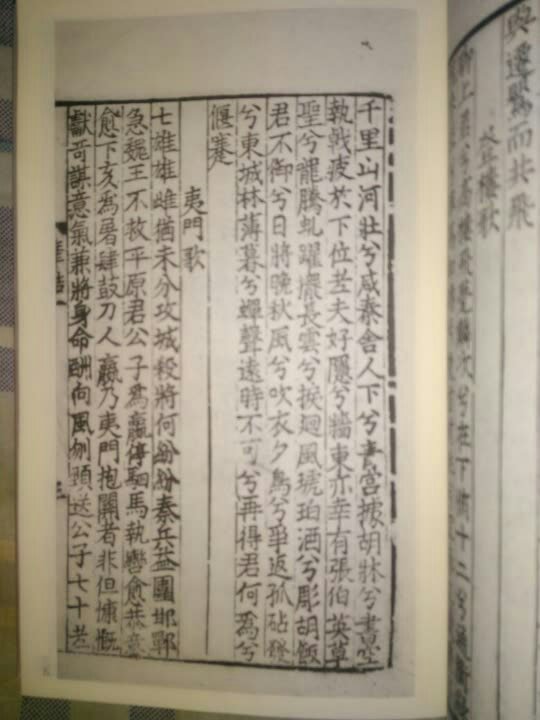 與遷鶯而共飛
登樓歌
聊上君兮高樓飛甍鱗次兮在下俯十二兮通衢
千里山河壯兮咸秦舍人下兮青宮據胡牀兮書空
執戟疲於下位老夫好隱兮牆東亦幸有張伯英草
聖兮龍騰虬躍擺長雲兮捩迴風琥珀酒兮彫胡飯
君不御兮日將晚秋風兮吹衣夕鳥兮爭返孤砧發
兮東城林薄暮兮蟬聲遠時不可兮再得君何爲兮
偃蹇
夷門歌
七雄雄雌猶未分攻城殺將何紛紛秦兵益圍邯鄲
急魏王不救平原君公子爲嬴停駟馬執轡愈恭意
愈下亥爲屠肆鼓刀人嬴乃夷門抱關者非但慷慨
獻奇謀意氣兼將身命酬向風刎頸送公子七十老